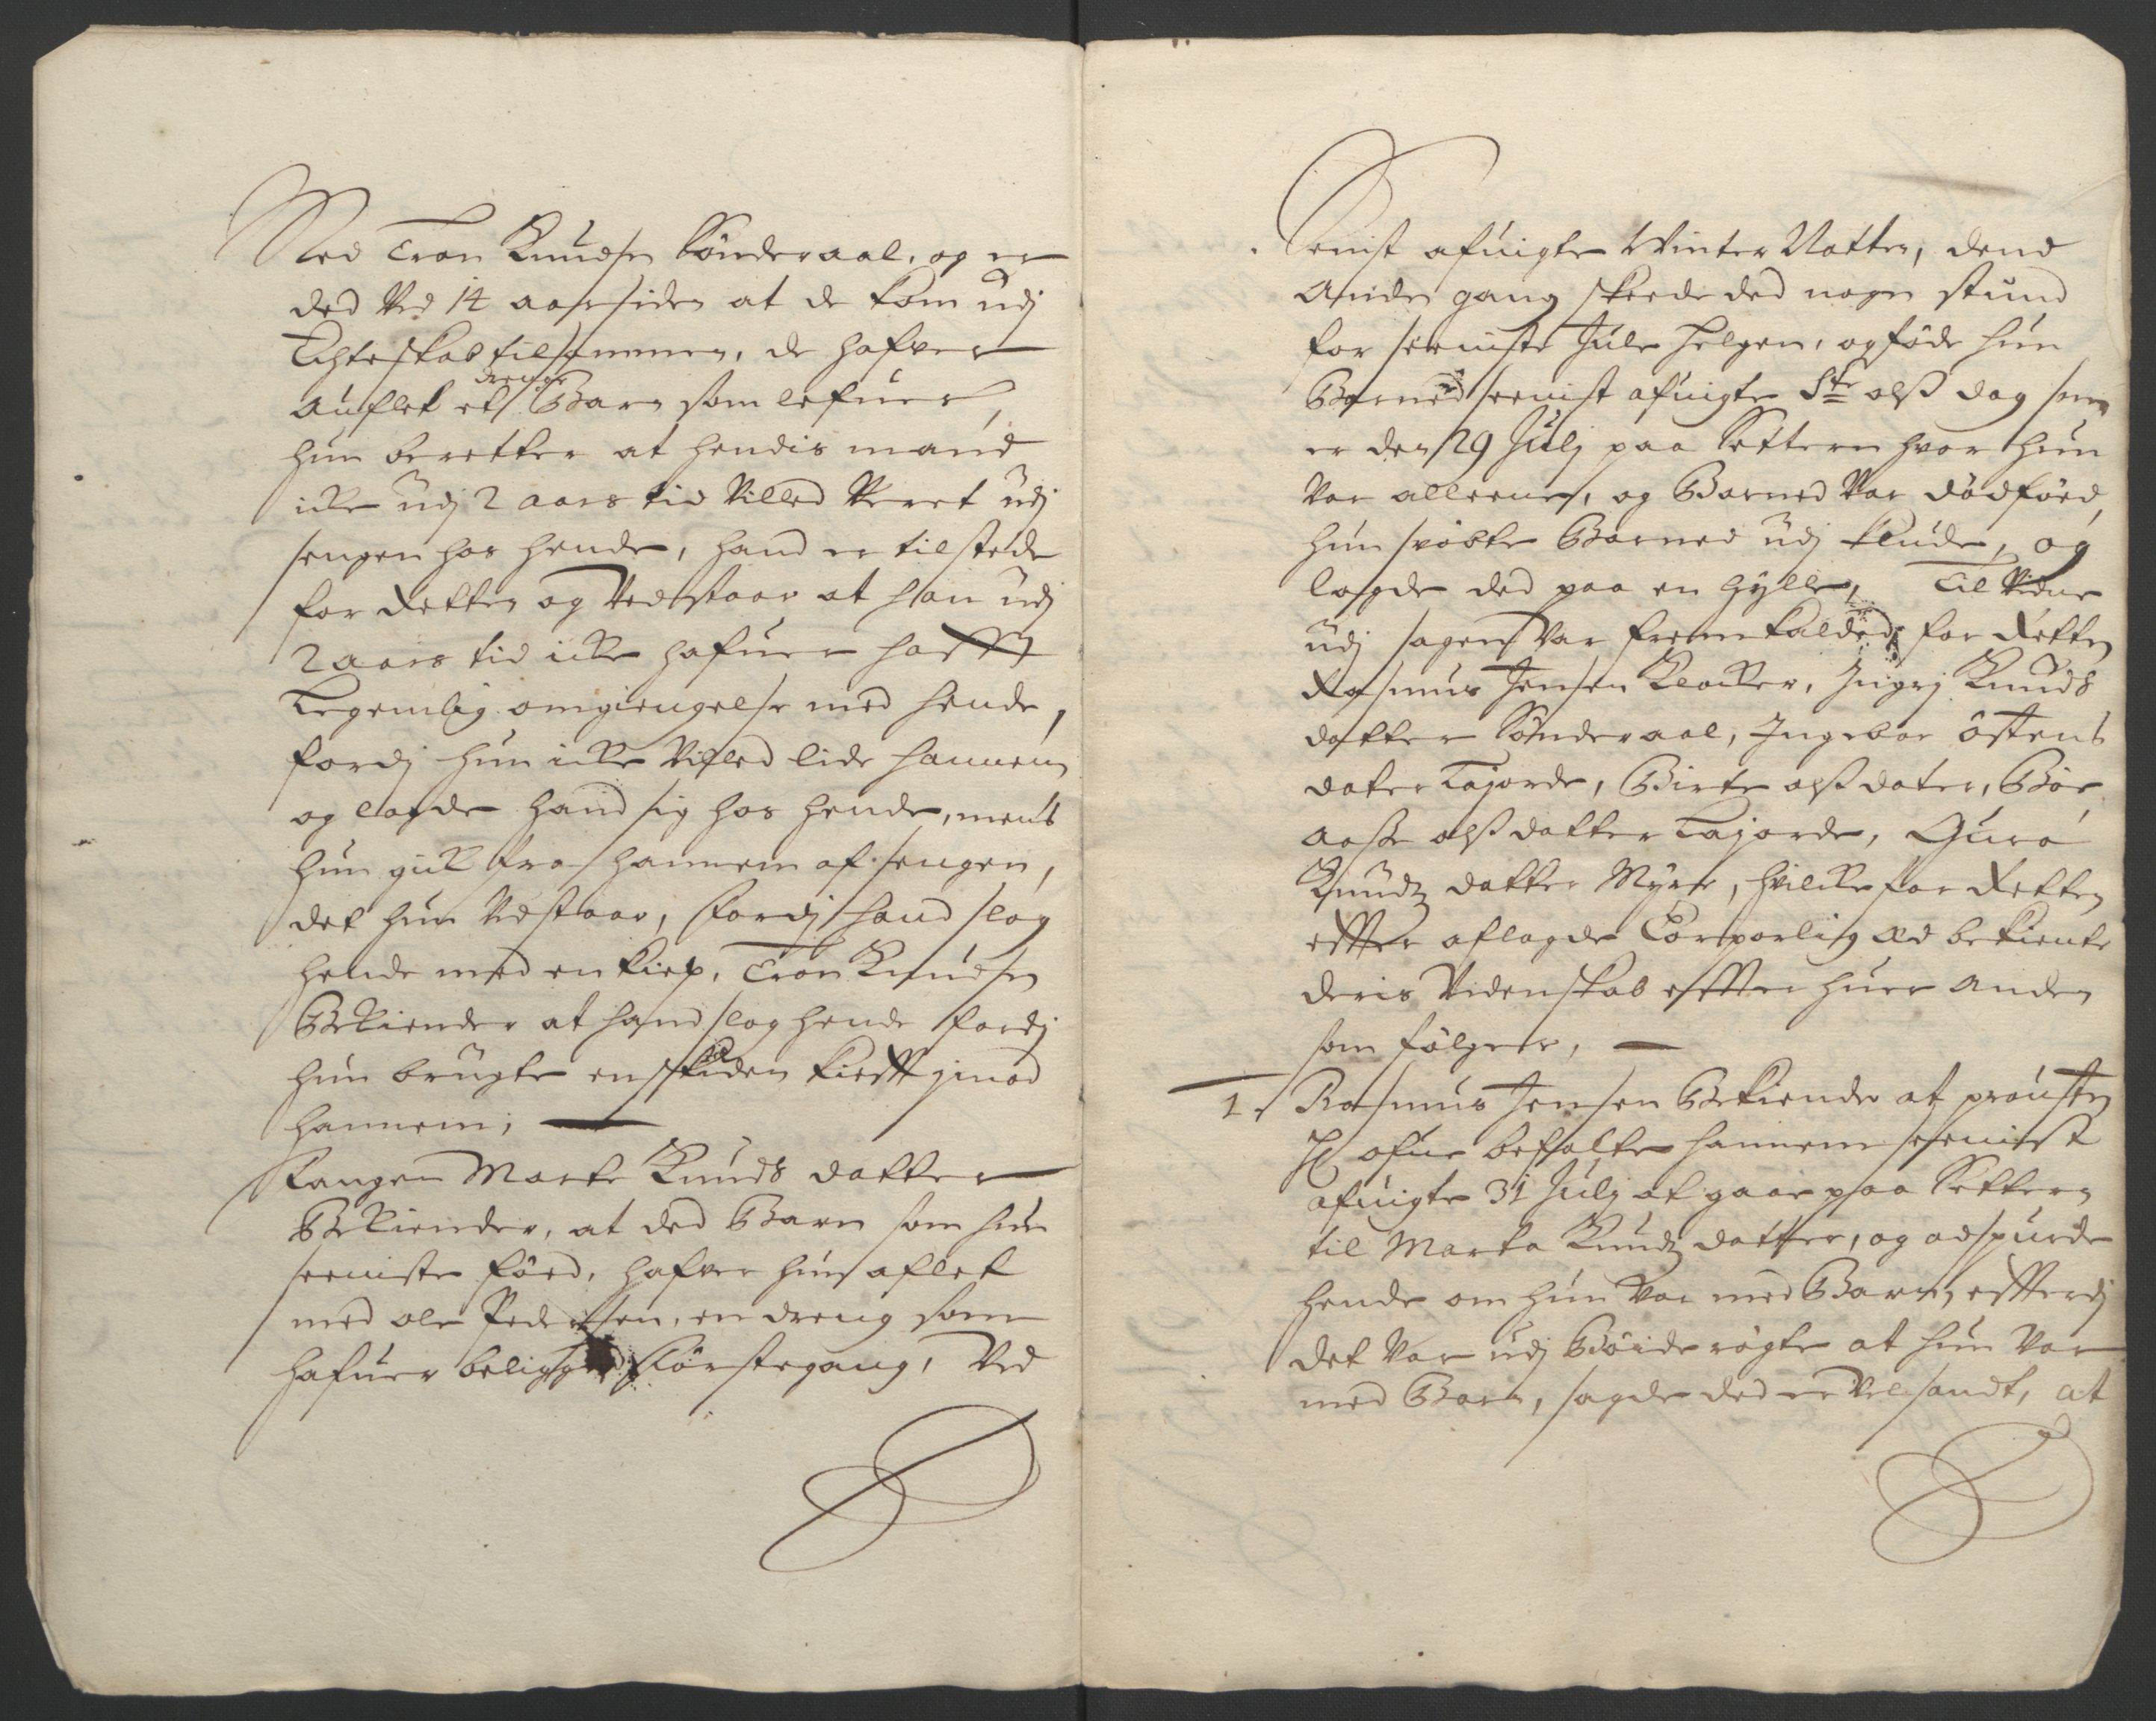 Med Tron Knudsen Sönderaal, og er
ded Ved 14 aar siden at de kom udj
Echteskab tilsammen, de hafver
auflet et drenge Barn som lefuer,
hun beretter at hendis mand
icke udj 2 aars tid Villed Veret udj
sengen hos hende, hand er tilstede
for Retten og Vedstaar at han udj
2 aars tid icke hafuer hafft
Legemlig omgiengelse med hende,
fordj hun icke Villed lide hannem
og lagde hand sig hos hende, mens
hun gick fra hannem af sengen,
det hun Vedstaar, fordj hand slog
hende med en kiep, Tron Knudsen
Bekiender at hand slog hende fordj
hun brugte en skiden kiefft jmod
hannem;
Fangen Marte Knuds datter
Bekiender, at ded Barn som hun
seeniste föed, hafver hun aflet
med ole Pedersen, en dreng som
hafuer beligget förste gang, Ved
Seenist afuigte Winter Natter, dend
Anden gang skeede ded nogen stund
for seeniste Jule Helgen, og föde hun
Barned seenist afuigte Ste olss dag som
er den 29 Julj paa Settern hvor hun
Var alleene, og Barned Var dödföed,
hun svöbte Barned udj klude, og
lagde ded paa en Hylle, Til Vidne
udj sagen Var fremkalded for Retten
Rasmus Jensen Klocker, Jngrj Knuds
datter Sönderaal, Jngebor östens
dater Lajorde, Birte olss dater, Böe
aasse olss datter Lajorde, Guro
Knudtz datter Myre, hvilcke for Retten
effter aflagde Corporlig æd bekiente
deris Videnskab effter huer anden
som fölger,
1. Rasmus Jensen Bekiender at prousten
H ofue befalte hannem seenist
afuigte 31 Julj at gaae paa Settern
til Marta Knudtz datter, og adspurde
hende om hun Var med Barn, effterdj
det Var udj Böide rögte at hun Var
med Barn, sagde ded er Vel sandt, at